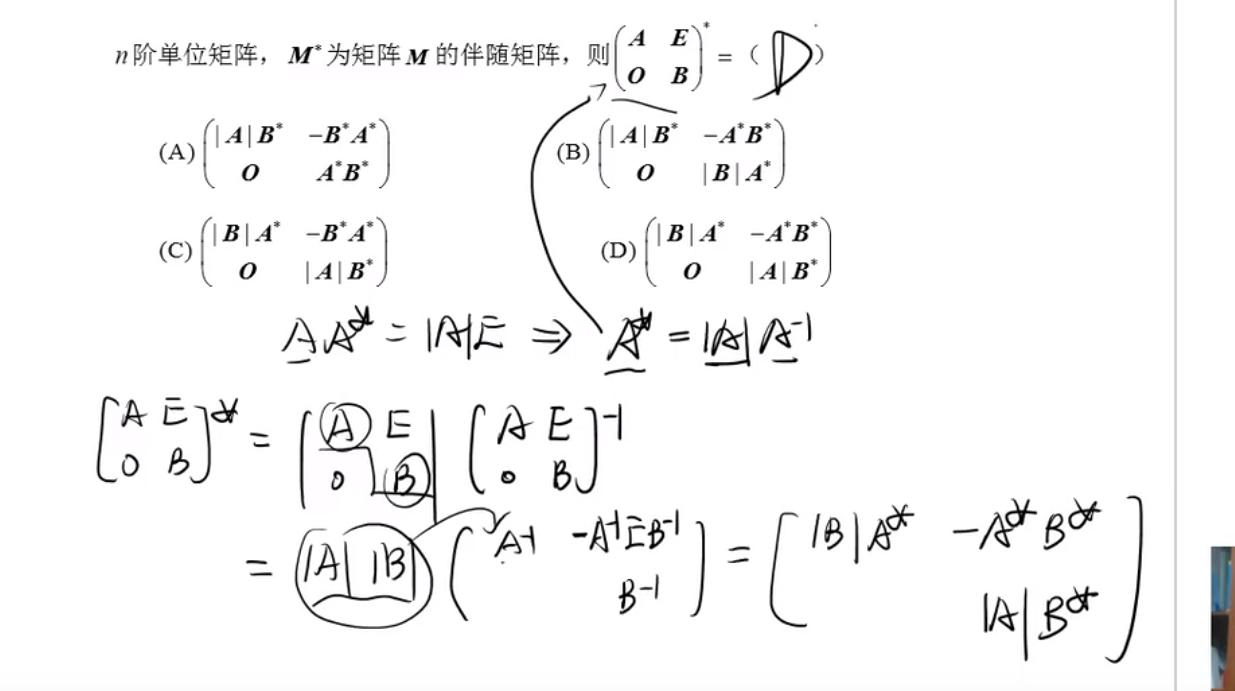 n阶单位矩阵，M*为矩阵M的伴随矩阵，则(A E O B)* = （ D ）
(A) (|A|B* -B*A* O A*B*) (B) (|A|B* -A*B* O |B|A*)
(C) (|B|A* -B*A* O |A|B*) (D) (|B|A* -A*B* O |A|B*)
AA* = |A|E ⇒ A* = |A|A⁻¹
[A E 0 B]* = |A E 0 B| [A E 0 B]⁻¹
= |A| |B| (A⁻¹ -A⁻¹EB⁻¹ B⁻¹) = [|B|A* -A*B* |A|B*]